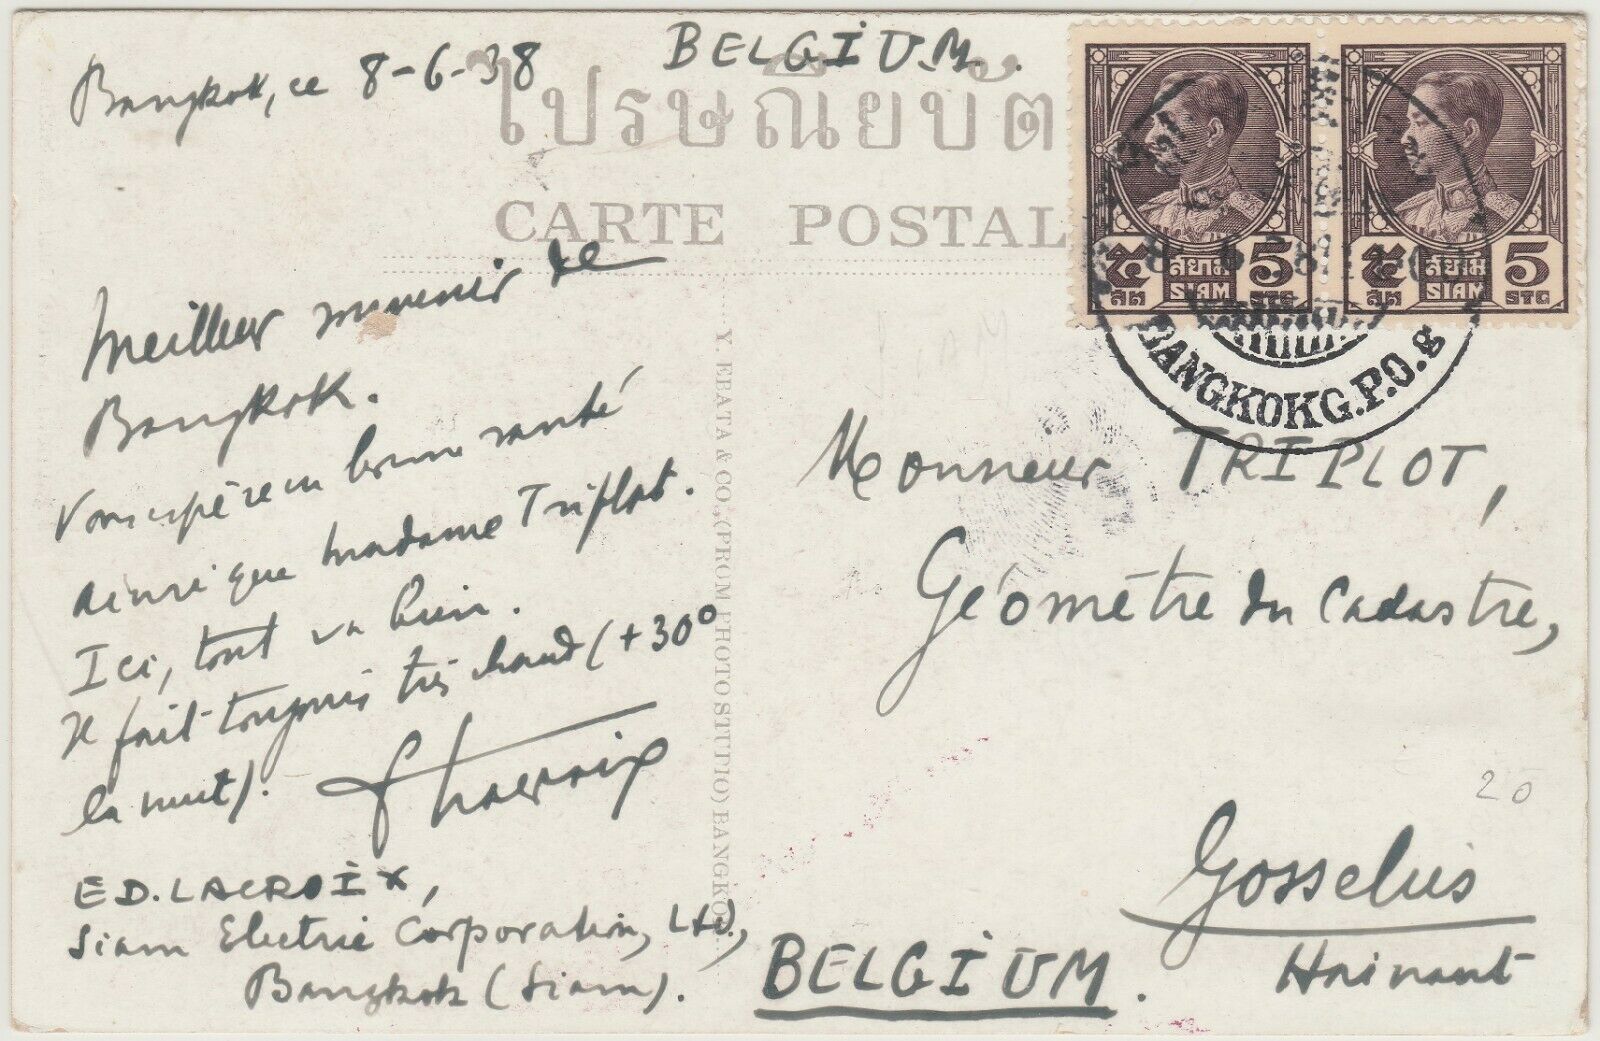 Bangkok, ce 8-6-38
Meilleur souvenir de
Bangkok.
Vous espère en bonne santé
ainsi que madame Triplot.
Ici, tout va bien.
Il fait toujours très chaud (+30°
la nuit).
ED. LACROIX,
Siam Electric Corporation, Ltd.,
Bangkok (Siam).
BELGIUM.
ไปรษณียบัต
CARTE POSTAL
Y. EBATA & CO., (PROM PHOTO STUDIO) BANGKO
๕ สยาม 5
สต SIAM STG
๕ สยาม 5
สต SIAM STG
BANGKOK G.P.O. g
SIAM
Monsieur TRIPLOT,
Géomètre du Cadastre,
20
Gosselies
Hainaut
BELGIUM.